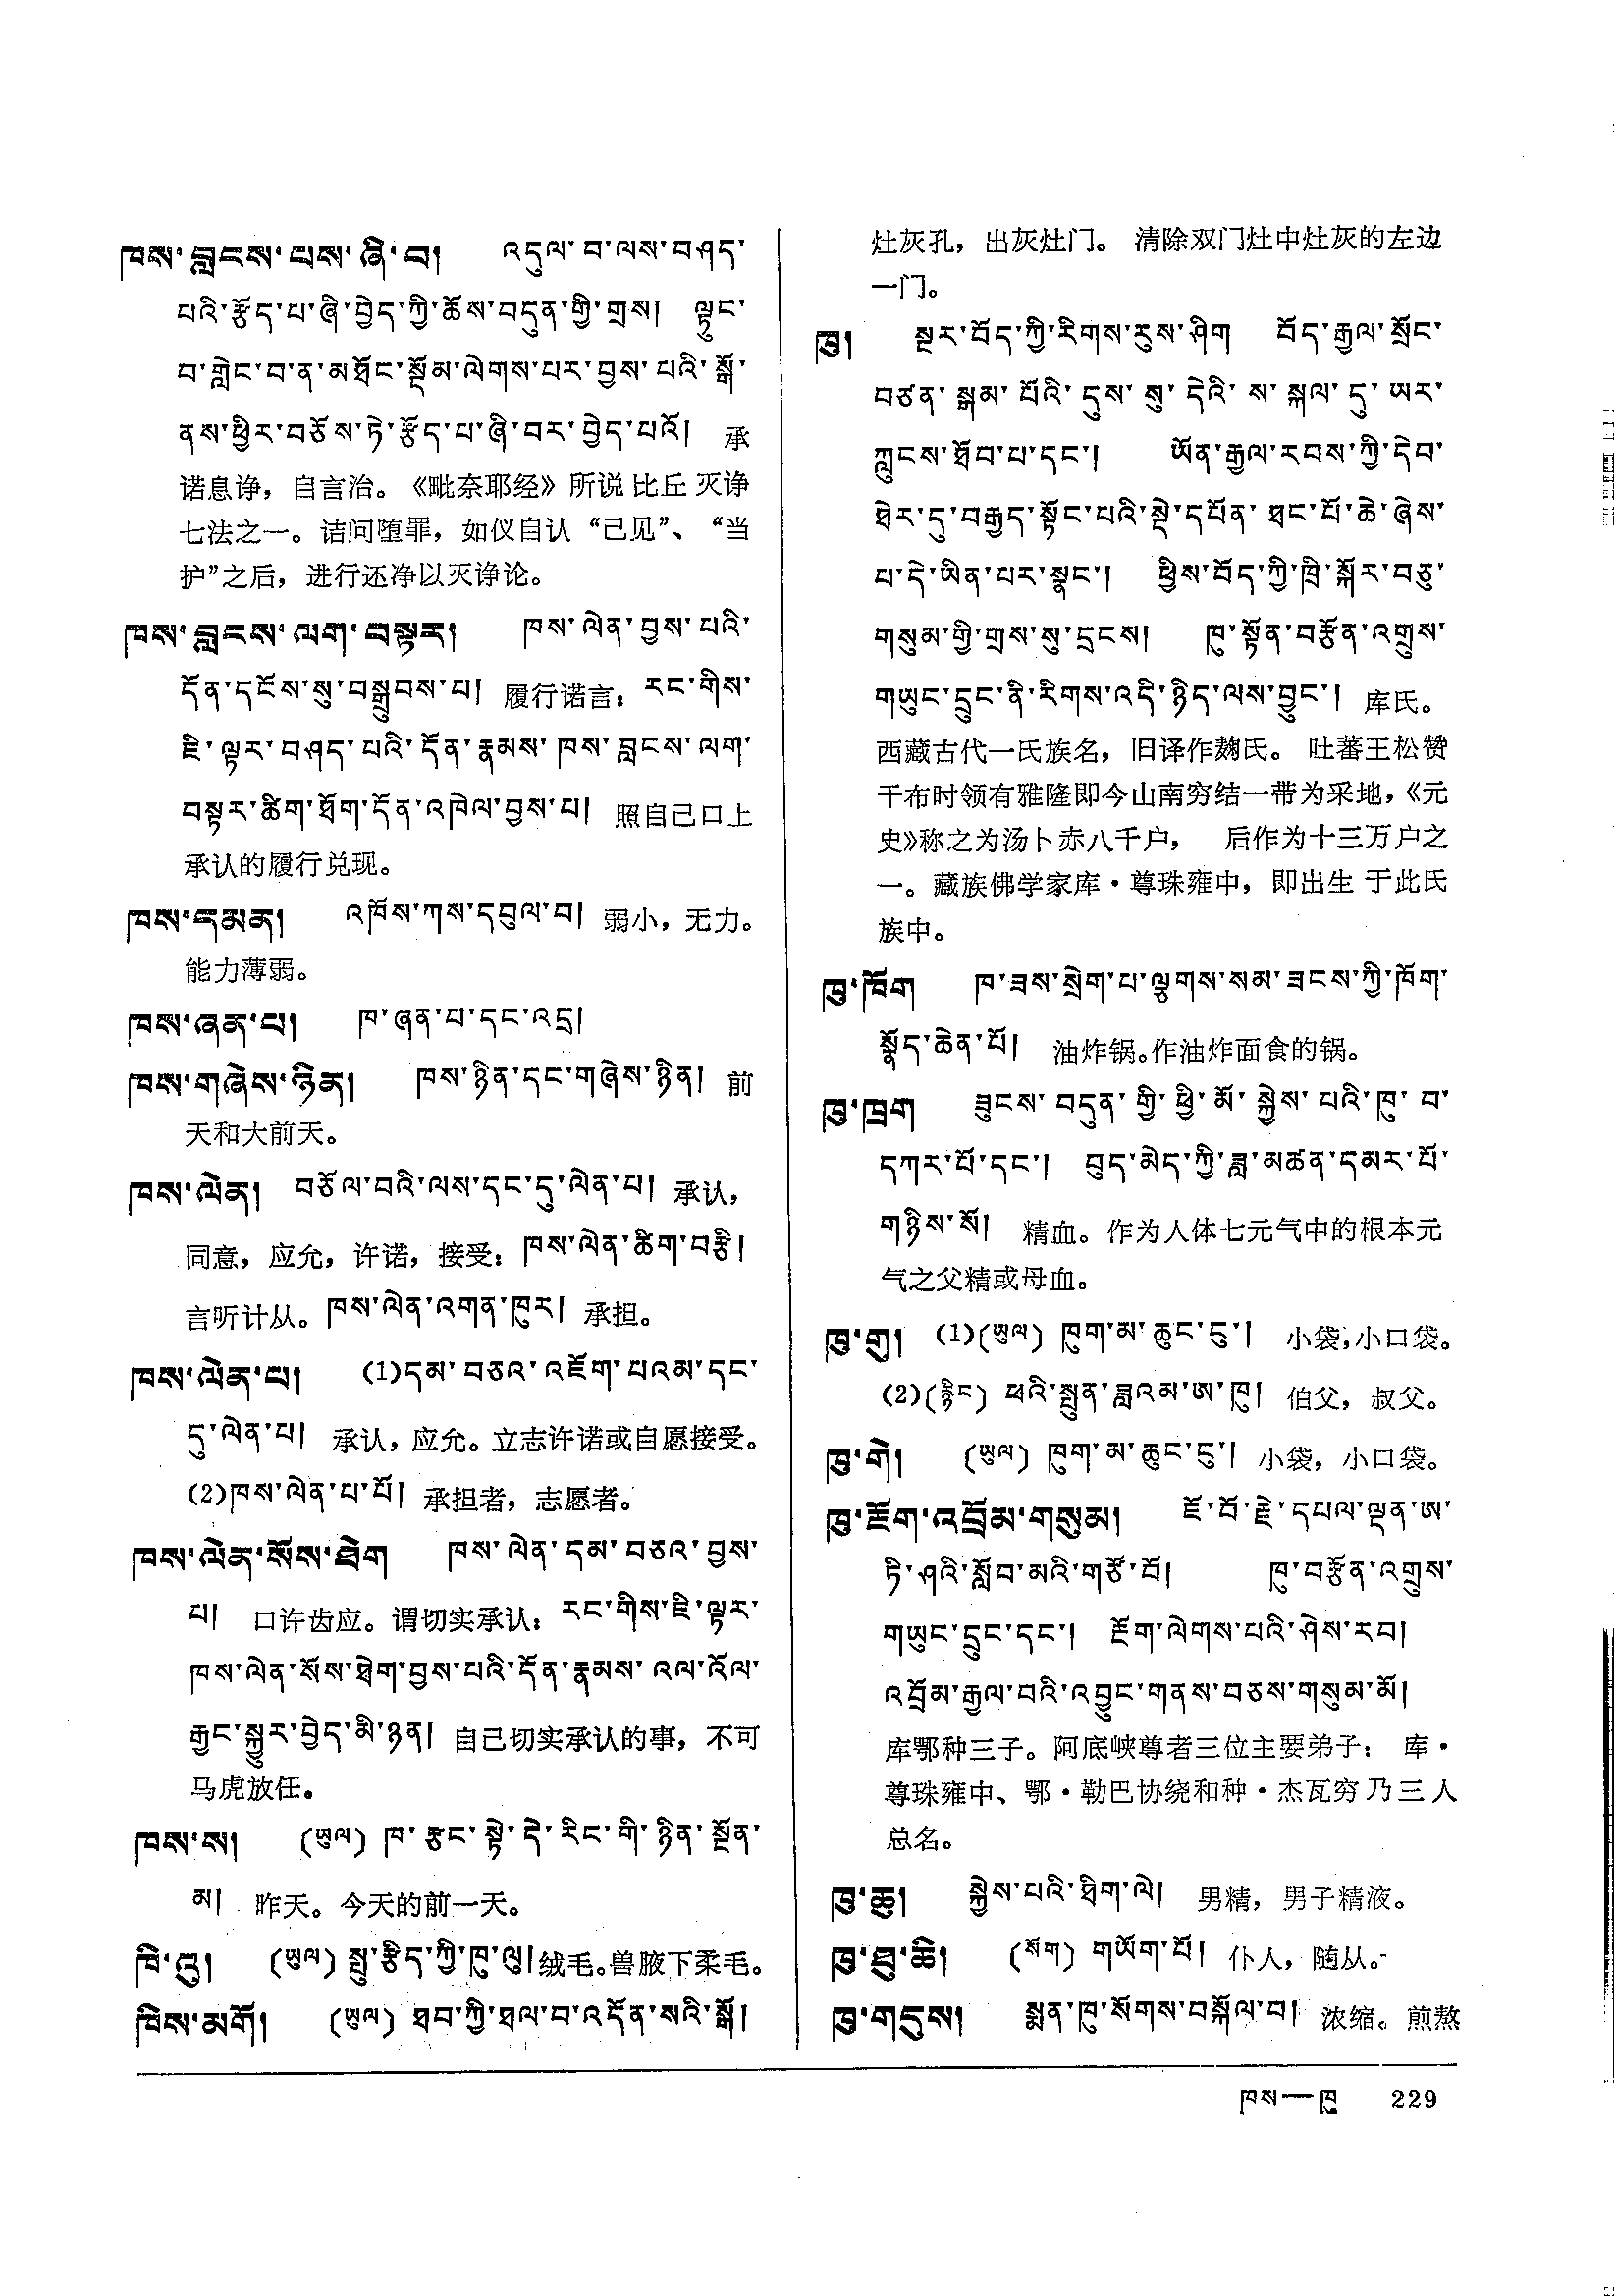 ཁས་བླངས་པས་ཞི་བ། འདུལ་བ་ལས་བཤད་
པའི་རྩོད་པ་ཞི་བྱེད་ཀྱི་ཆོས་བདུན་གྱི་གྲས། ལྟུང་
བ་གླེང་བ་ན་མཐོང་སྡོམ་ལེགས་པར་བྱས་པའི་སྒོ་
ནས་ཕྱིར་བཅོས་ཏེ་རྩོད་པ་ཞི་བར་བྱེད་པའོ། 承
诺息诤，自言治。《毗奈耶经》所说比丘灭诤
七法之一。诘问堕罪，如仪自认“己见”、“当
护”之后，进行还净以灭诤论。
ཁས་བླངས་ལག་བསྟར། ཁས་ལེན་བྱས་པའི་
དོན་དངོས་སུ་བསྒྲུབས་པ། 履行诺言：རང་གིས་
ཇི་ལྟར་བཤད་པའི་དོན་རྣམས་ཁས་བླངས་ལག་
བསྟར་ཚིག་ཐོག་དོན་འཁེལ་བྱས་པ། 照自己口上
承认的履行兑现。
ཁས་དམན། འཁོས་ཀས་དབུལ་བ། 弱小，无力。
能力薄弱。
ཁས་ཞན་པ། ཁ་ཞན་པ་དང་འདྲ།
ཁས་གཞེས་ཉིན། ཁས་ཉིན་དང་གཞེས་ཉིན། 前
天和大前天。
ཁས་ལེན། བཅོལ་བའི་ལས་དང་དུ་ལེན་པ། 承认，
同意，应允，许诺，接受：ཁས་ལེན་ཚིག་བརྩི།
言听计从。ཁས་ལེན་འགན་ཁུར། 承担。
ཁས་ལེན་པ། (1)དམ་བཅའ་འཇོག་པའམ་དང་
དུ་ལེན་པ། 承认，应允。立志许诺或自愿接受。
(2)ཁས་ལེན་པ་པོ། 承担者，志愿者。
ཁས་ལེན་སོས་ཐེག ཁས་ལེན་དམ་བཅའ་བྱས་
པ། 口许齿应。谓切实承认：རང་གིས་ཇི་ལྟར་
ཁས་ལེན་སོས་ཐེག་བྱས་པའི་དོན་རྣམས་འལ་འོལ་
རྒྱང་སྐྱུར་བྱེད་མི་ཉན། 自己切实承认的事，不可
马虎放任。
ཁས་ས། (ཡུལ) ཁ་རྩང་སྟེ་དེ་རིང་གི་ཉིན་སྔོན་
མ། 昨天。今天的前一天。
ཁི་ལུ། (ཡུལ) སྤུ་རྩིད་ཀྱི་ཁུ་ལུ། 绒毛。兽腋下柔毛。
ཁིས་མགོ། (ཡུལ) ཐབ་ཀྱི་ཐལ་བ་འདོན་སའི་སྒོ།
灶灰孔，出灰灶门。清除双门灶中灶灰的左边
一门。
ཁུ། སྔར་བོད་ཀྱི་རིགས་རུས་ཤིག བོད་རྒྱལ་སྲོང་
བཙན་སྒམ་པོའི་དུས་སུ་དེའི་ས་སྐལ་དུ་ཡར་
ཀླུངས་ཐོབ་པ་དང་། ཡོན་རྒྱལ་རབས་ཀྱི་དེབ་
ཐེར་དུ་བརྒྱད་སྟོང་པའི་སྡེ་དཔོན་ཐང་པོ་ཆེ་ཞེས་
པ་དེ་ཡིན་པར་སྣང་། ཕྱིས་བོད་ཀྱི་ཁྲི་སྐོར་བཅུ་
གསུམ་གྱི་གྲས་སུ་དྲངས། ཁུ་སྟོན་བརྩོན་འགྲུས་
གཡུང་དྲུང་ནི་རིགས་འདི་ཉིད་ལས་བྱུང་། 库氏。
西藏古代一氏族名，旧译作麹氏。吐蕃王松赞
干布时领有雅隆即今山南穷结一带为采地，《元
史》称之为汤卜赤八千户，后作为十三万户之
一。藏族佛学家库·尊珠雍中，即出生于此氏
族中。
ཁུ་ཁོག ཁ་ཟས་སྲེག་པ་ལྕགས་སམ་ཟངས་ཀྱི་ཁོག་
སྣོད་ཆེན་པོ། 油炸锅。作油炸面食的锅。
ཁུ་ཁྲག ཟུངས་བདུན་གྱི་ཕྱི་མོ་སྐྱེས་པའི་ཁུ་བ་
དཀར་པོ་དང་། བུད་མེད་ཀྱི་ཟླ་མཚན་དམར་པོ་
གཉིས་སོ། 精血。作为人体七元气中的根本元
气之父精或母血。
ཁུ་གུ། (1)(ཡུལ) ཁུག་མ་ཆུང་ངུ་། 小袋，小口袋。
(2)(རྙིང) ཕའི་སྤུན་ཟླའམ་ཨ་ཁུ། 伯父，叔父。
ཁུ་གེ། (ཡུལ) ཁུག་མ་ཆུང་ངུ་། 小袋，小口袋。
ཁུ་རྔོག་འབྲོམ་གསུམ། ཇོ་བོ་རྗེ་དཔལ་ལྡན་ཨ་
ཏི་ཤའི་སློབ་མའི་གཙོ་བོ། ཁུ་བརྩོན་འགྲུས་
གཡུང་དྲུང་དང་། རྔོག་ལེགས་པའི་ཤེས་རབ།
འབྲོམ་རྒྱལ་བའི་འབྱུང་གནས་བཅས་གསུམ་མོ།
库鄂种三子。阿底峡尊者三位主要弟子：库·
尊珠雍中、鄂·勒巴协绕和种·杰瓦穷乃三人
总名。
ཁུ་ཆུ། སྐྱེས་པའི་ཐིག་ལེ། 男精，男子精液。
ཁུ་ཐུ་ཆེ། (སོག) གཡོག་པོ། 仆人，随从。
ཁུ་གདུས། སྨན་ཁུ་སོགས་བསྐོལ་བ། 浓缩。煎熬
ཁས—ཁུ 229